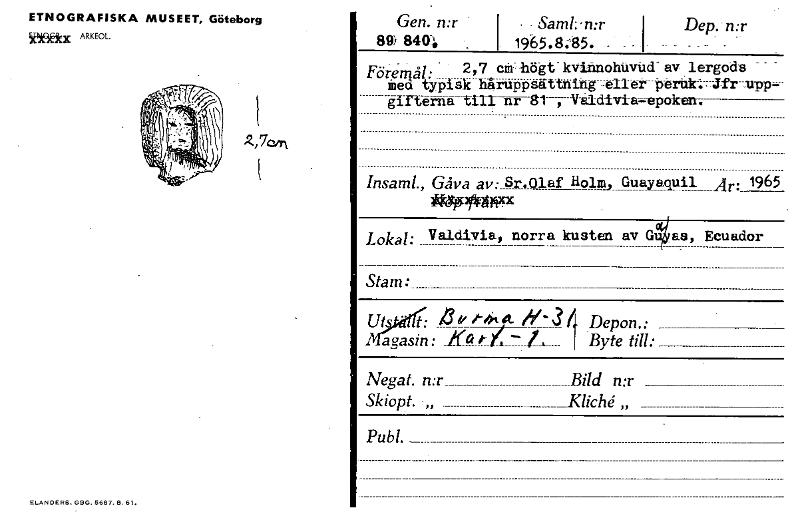 ETNOGRAFISKA MUSEET, Göteborg
ARKEOL.
2,7cm
ELANDERS. GBG. 5687. 8. 61.
Gen. n:r Saml. n:r Dep. n:r
89 840. 1965.8.85.
Föremål: 2,7 cm högt kvinnohuvud av lergods
med typisk håruppsättning eller peruk. Jfr upp-
gifterna till nr 81 , Valdivia-epoken.
Insaml., Gåva av: Sr.Olaf Holm, Guayaquil År: 1965
Köp från
Lokal: Valdivia, norra kusten av Guayas, Ecuador
Stam:
Utställt: Burma H-31 Depon.:
Magasin: Kart. - 1. Byte till:
Negat. n:r Bild n:r
Skiopt. „ Kliché „
Publ.